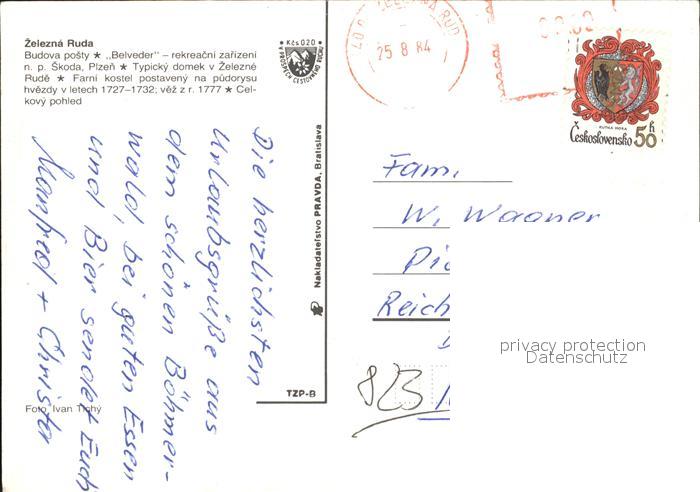 Železná Ruda
Budova pošty ★ „Belveder" – rekreační zařízení
n. p. Škoda, Plzeň ★ Typický domek v Železné
Rudě ★ Farní kostel postavený na půdorysu
hvězdy v letech 1727–1732; věž z r. 1777 ★ Cel-
kový pohled
Kčs 0,20
Die herzlichsten
Urlaubsgrüße aus
dem schönen Böhmer-
wald, bei guten Essen
und Bier sendet Euch
Manfred + Christa
Foto Ivan Tichý
Nakladateľstvo PRAVDA, Bratislava
TZP-B
25 8 84
KUTNÁ HORA
Československo 50 h
Fam.
W. Wagner
Reich
823
privacy protection
Datenschutz